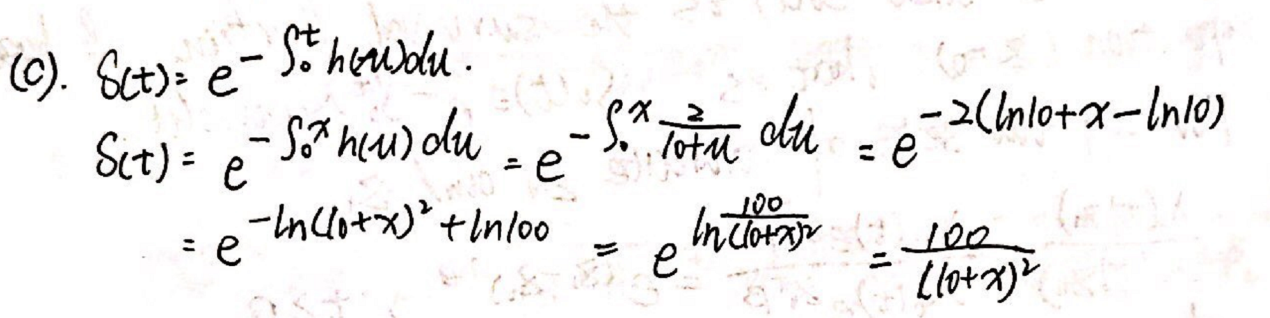 (c). S(t) = e^{-∫_0^t h(u)du}.
S(t) = e^{-∫_0^x h(u)du} = e^{-∫_0^x \frac{2}{10+u} du} = e^{-2(ln10+x-ln10)}
= e^{-ln(10+x)^2+ln100} = e^{ln\frac{100}{(10+x)^2}} = \frac{100}{(10+x)^2}